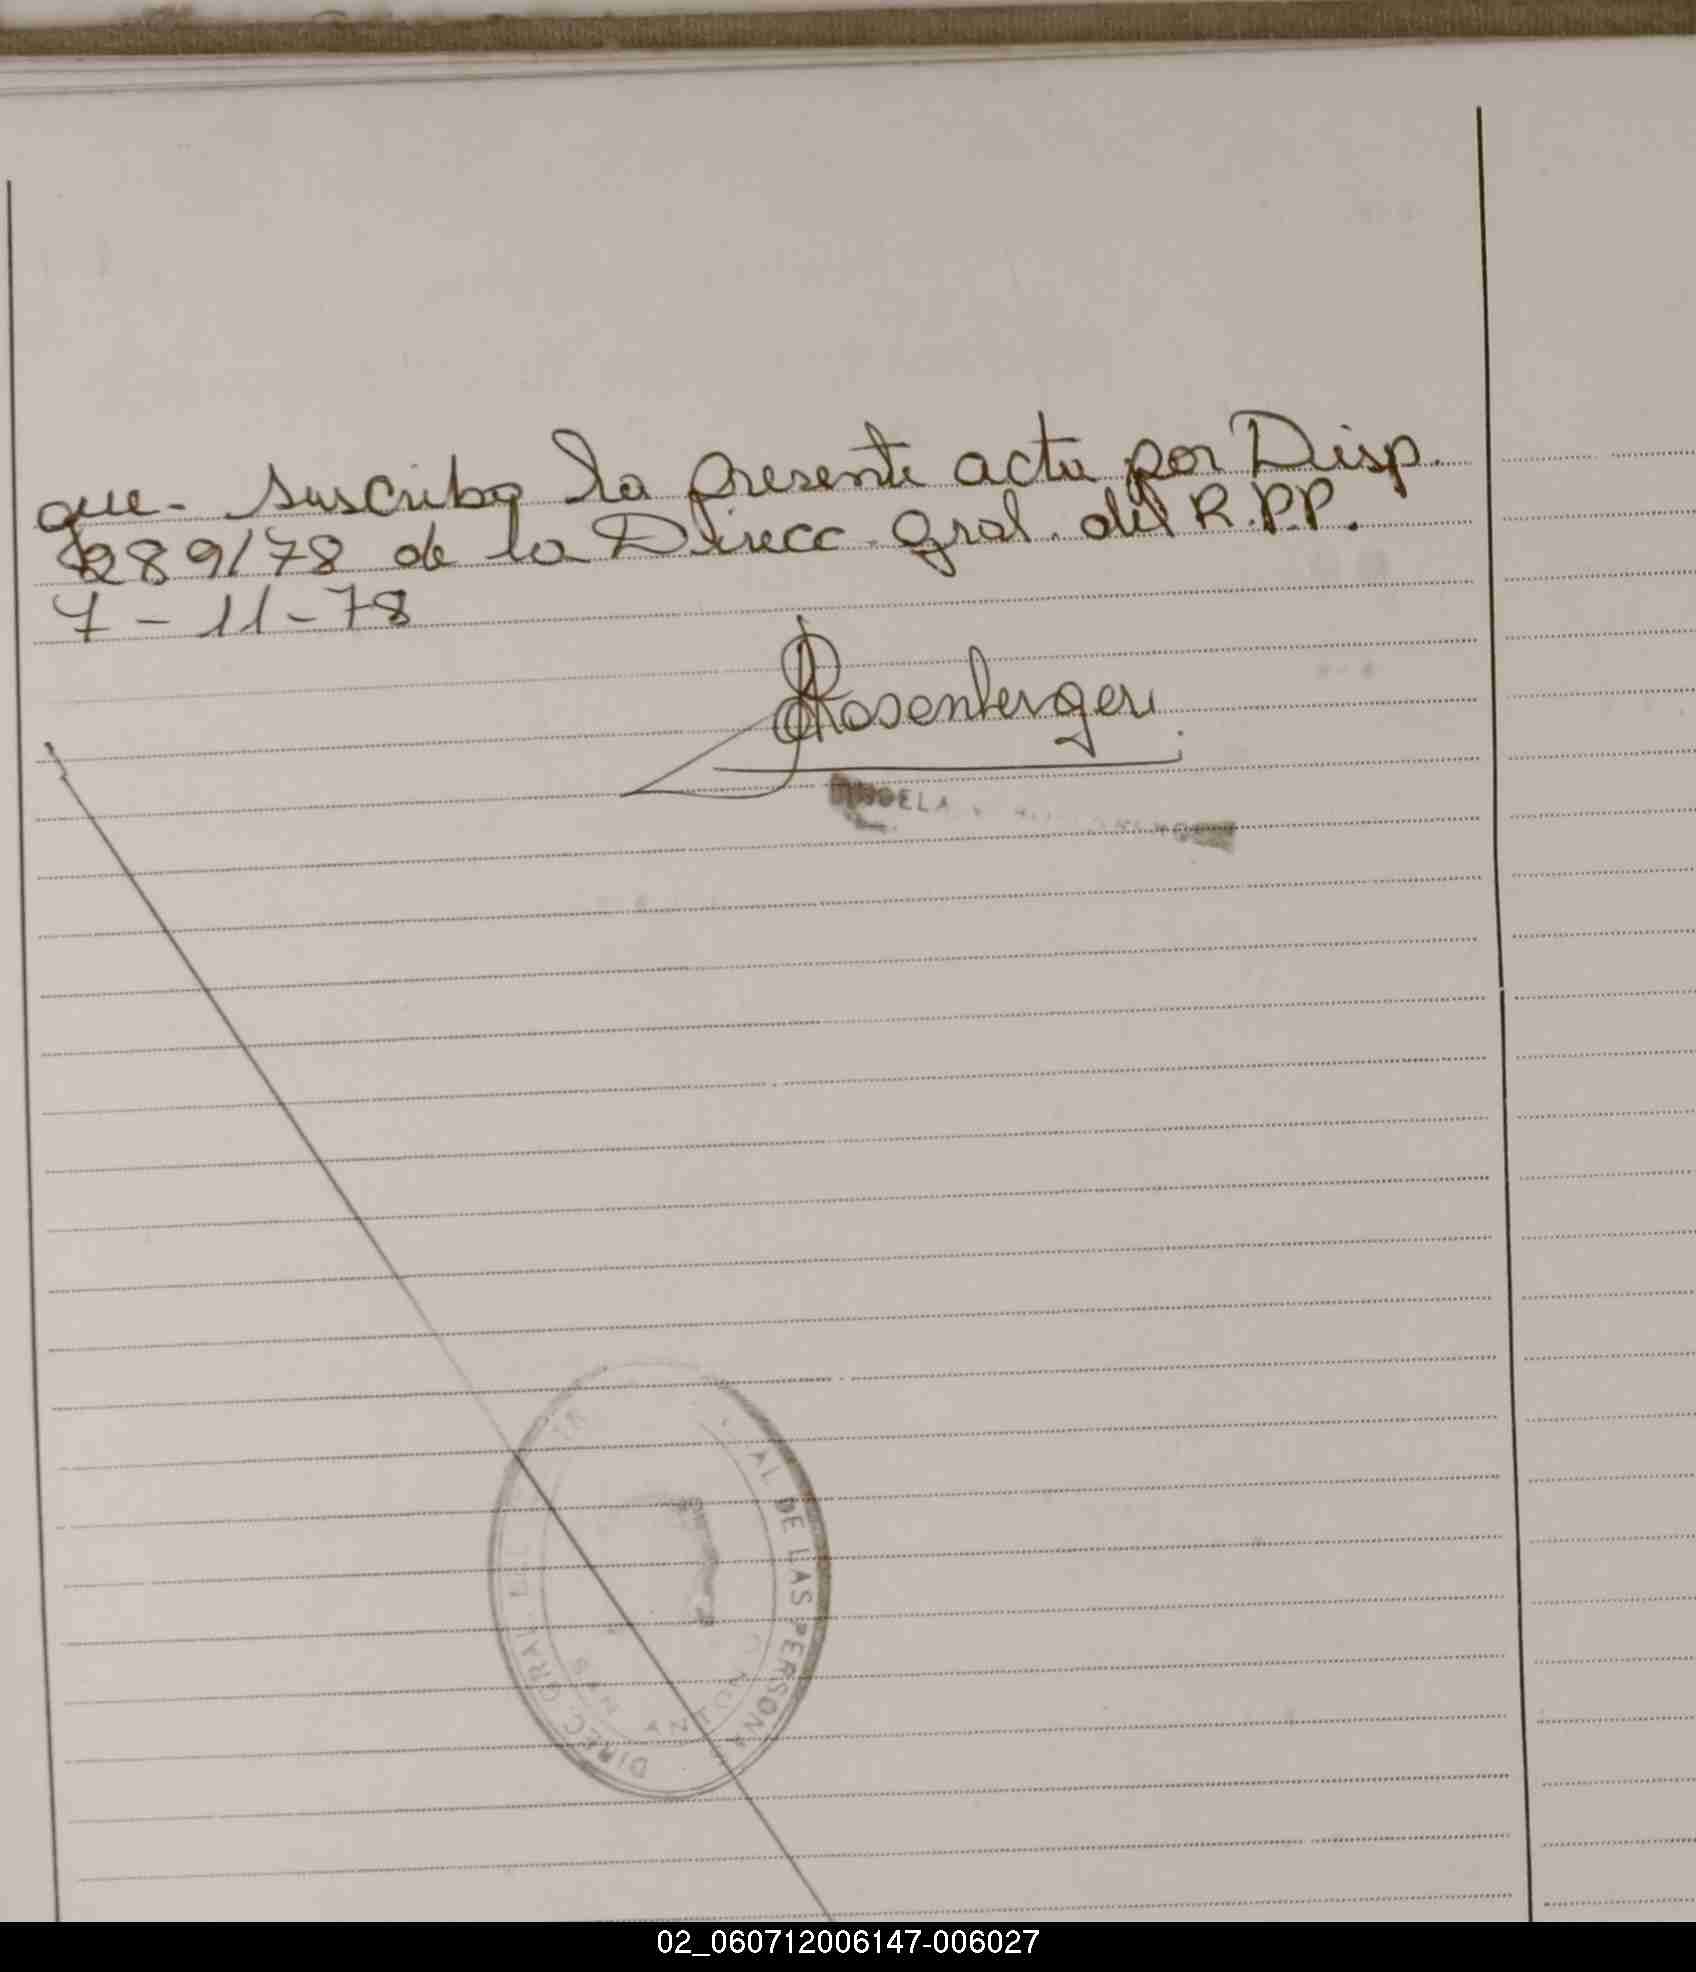 que- suscribo la presente acta por Disp.
289/78 de la Direcc. Gral. del R.P.P.
7-11-78
Rosenberger
DIREC GRAL DEL
AL DE LAS PERSONA
SAN ANTON
02_060712006147-006027